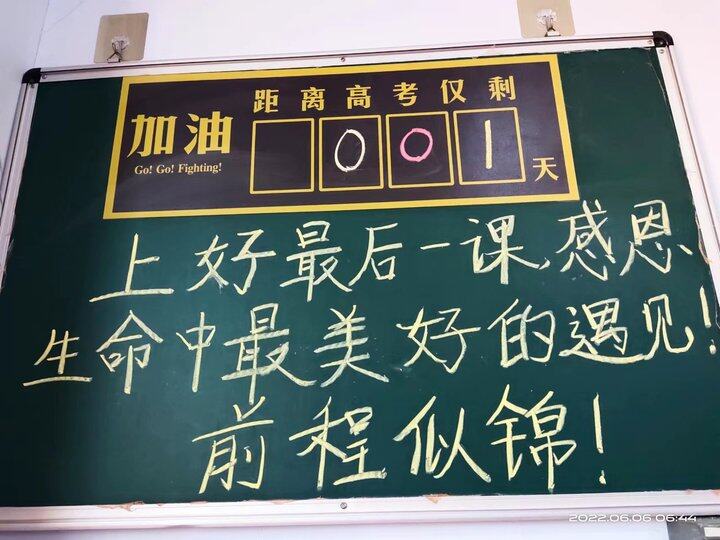 距离高考仅剩
加油 001天
Go! Go! Fighting!
上好最后一课感恩
生命中最美好的遇见!
前程似锦!
2022.06.06 06:44